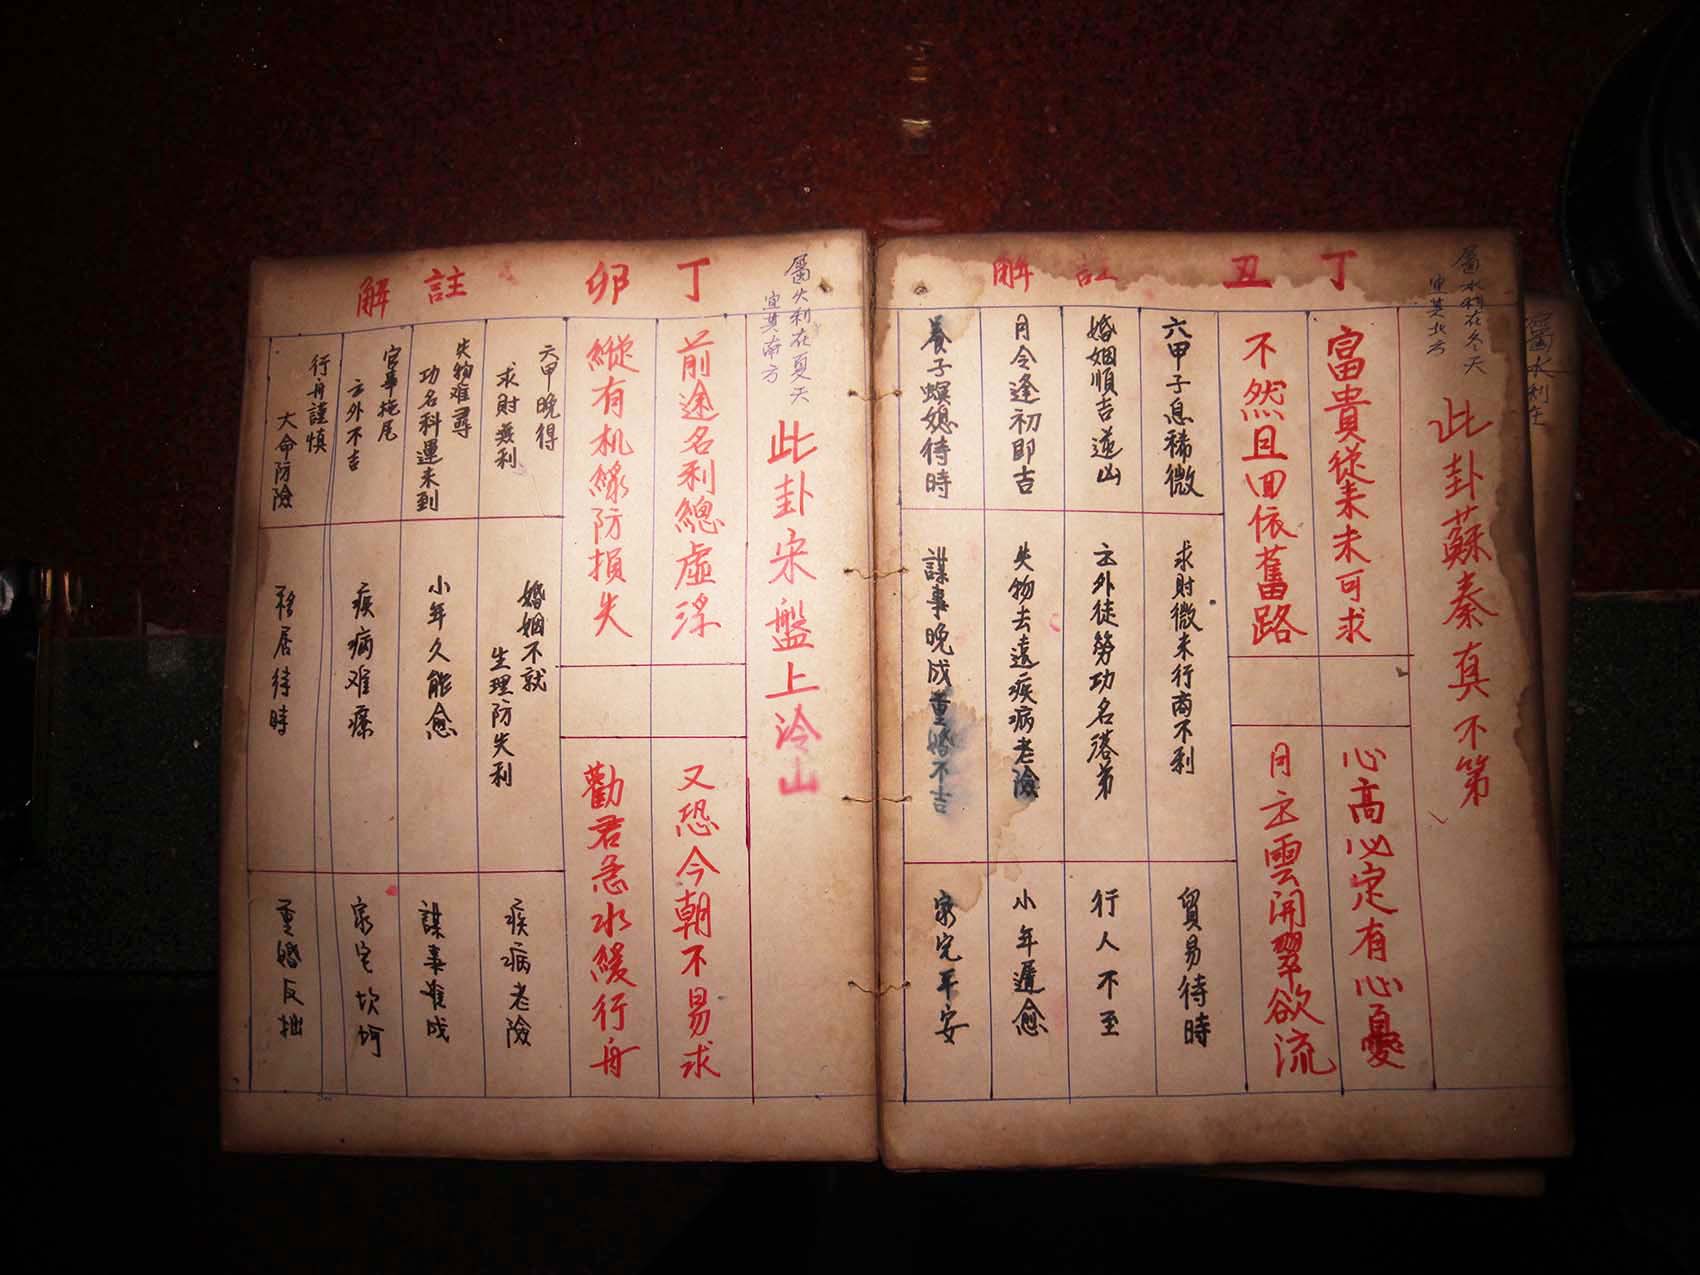 丁丑 註解
屬水利在冬天
宜其北方
此卦蘇秦真不第
富貴從來未可求
心高必定有心憂
不然且回依舊路
月主雲開翠欲流
六甲子息稀微
求財微來行商不利
貿易待時
婚姻順吉
主外徒勞功名落第
行人不至
月令逢初即吉
失物去遠疾病老險
小年遲愈
養子螟媳待時
謀事晚成重婚不吉
家宅平安
屬水利在
丁卯 註解
屬火利在夏天
宜其南方
此卦宋盤上冷山
前途名利總虛浮
又恐今朝不易求
縱有机緣防損失
勸君急水緩行舟
六甲晚得
求財無利
婚姻不就
生理防失利
疾病老險
失物难尋
功名科運未到
小年久能愈
謀事难成
官事拖尾
主外不吉
疾病难療
家宅坎坷
行舟謹慎
大命防險
移居待時
重婚反拙